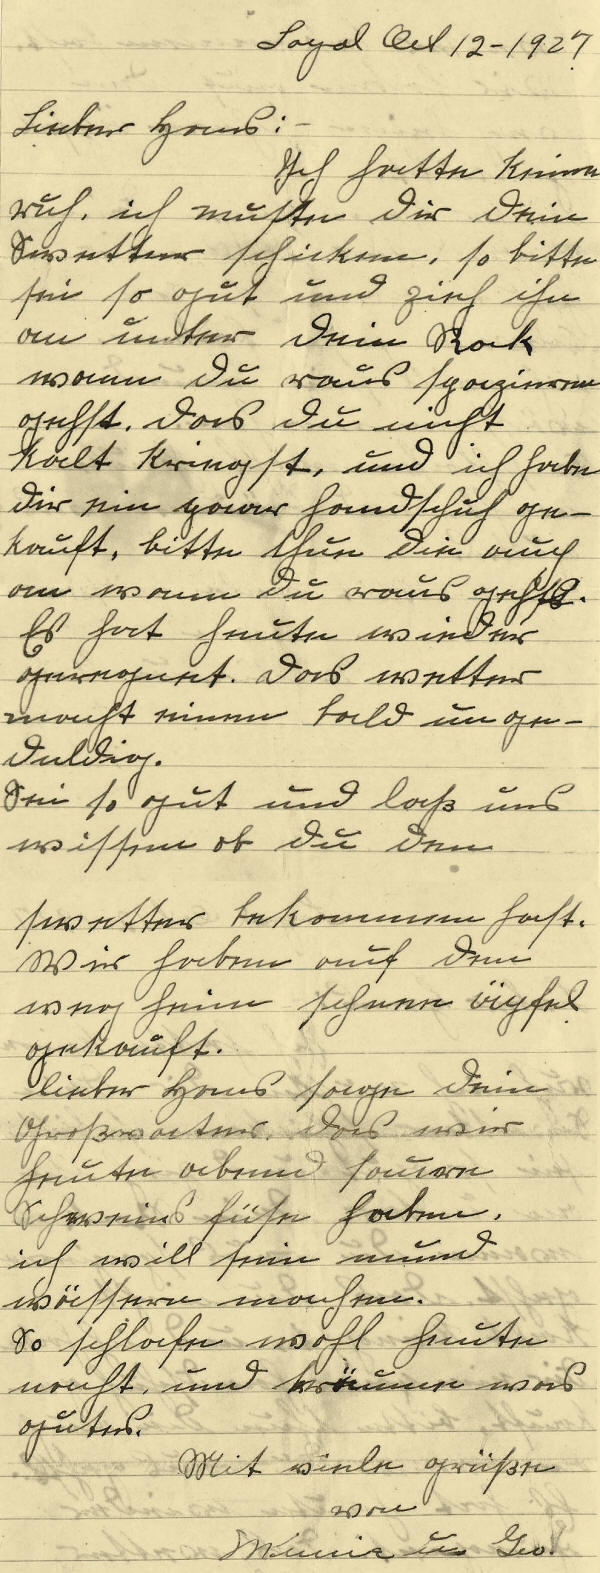 Loyal Oct 12-1927
Lieber Hans:-
Ich hatte keine
ruh. ich mußte dir dein
Swetter schicken. so bitte
sei so gut und zieh ihn
an unter dein Rock
wann du raus spazieren
gehst. das du nicht
kalt kriegst. und ich habe
dir ein paar handschuh ge-
kauft. bitte thue die auch
an wann du raus gehst.
Es hat heute wieder
geregnet. das wetter
macht einen bald unge-
duldig.
Sei so gut und laß uns
wissen ob du den
swetter bekommen hast.
Wir haben auf den
weg heim schene äpfel
gekauft.
lieber Hans sage dein
Großvater. das wir
heute abend sauere
Schweins füse haben.
ich will sein mund
wässern machen.
So schlafe wohl heute
nacht. und träume was
gutes.
Mit viele grüße
von
Minnie u. Geo.